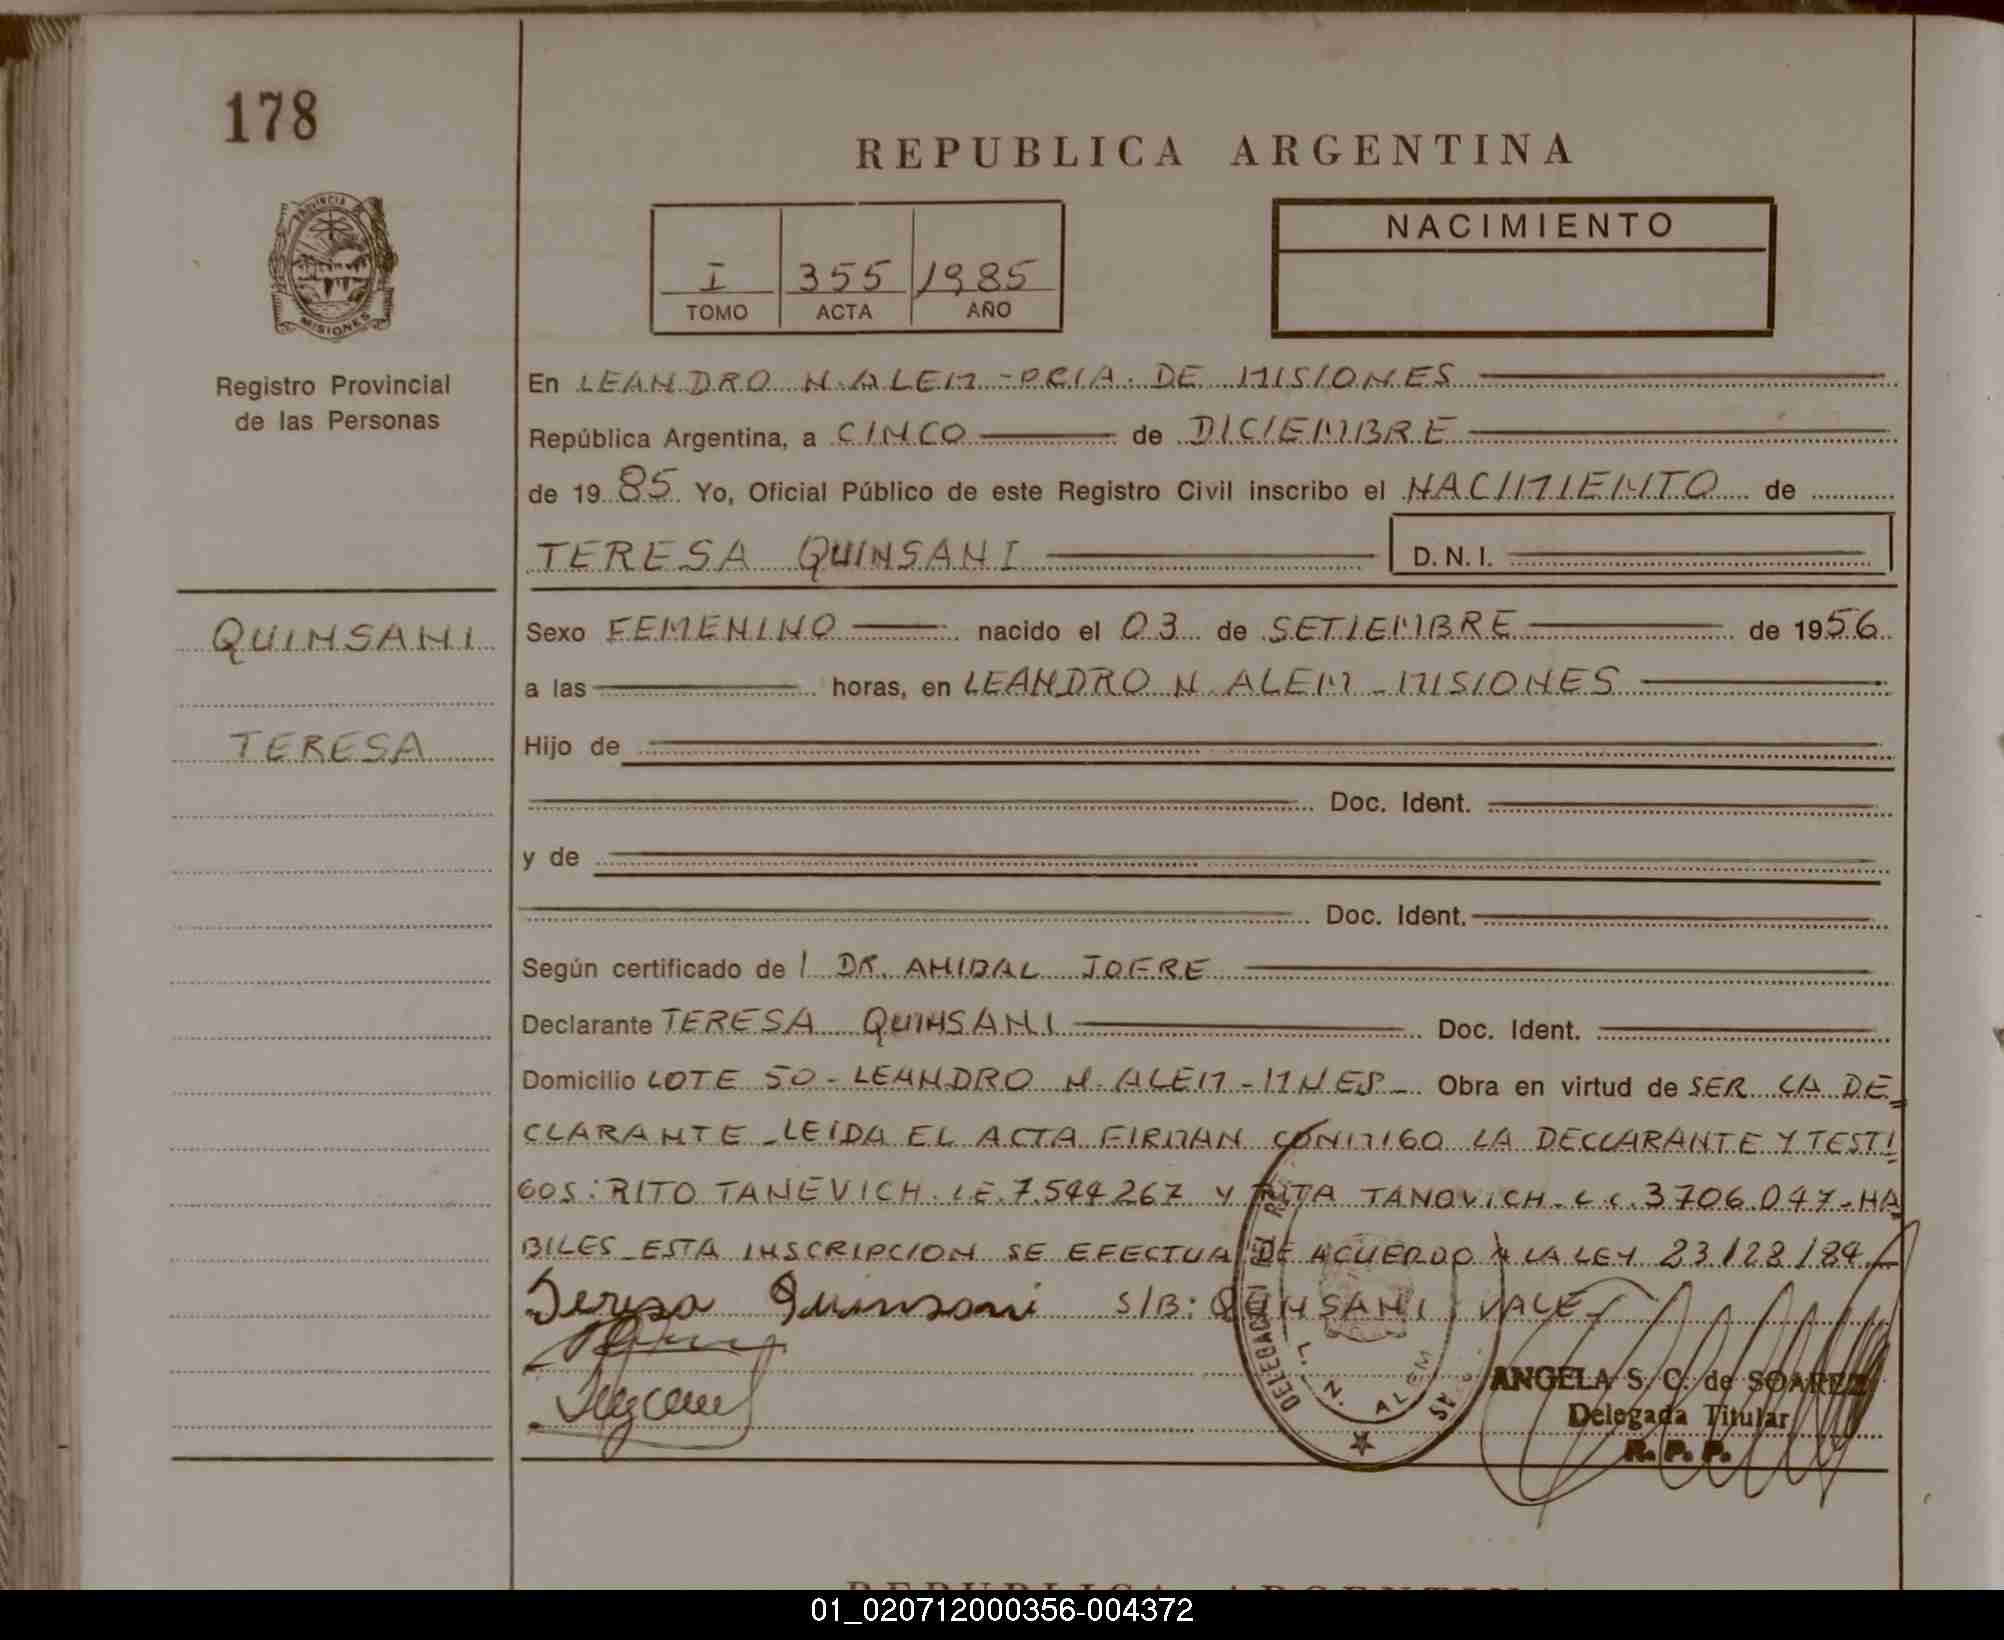 178
REPUBLICA ARGENTINA
PROVINCIA
MISIONES
I 355 1985
TOMO ACTA AÑO
NACIMIENTO
Registro Provincial
de las Personas
En LEANDRO N. ALEM - PCIA. DE MISIONES
República Argentina, a CINCO de DICIEMBRE
de 19 85 Yo, Oficial Público de este Registro Civil inscribo el NACIMIENTO de
TERESA QUINSANI D.N.I.
QUINSANI
TERESA
Sexo FEMENINO nacido el 03 de SETIEMBRE de 1956
a las horas, en LEANDRO N. ALEM - MISIONES
Hijo de
Doc. Ident.
y de
Doc. Ident.
Según certificado de / DR. ANIBAL JOFRE
Declarante TERESA QUINSANI Doc. Ident.
Domicilio LOTE 50 - LEANDRO N. ALEM - MNES - Obra en virtud de SER LA DE
CLARANTE - LEIDA EL ACTA FIRMAN CONMIGO LA DECLARANTE Y TESTI
GOS: RITO TANEVICH. L.E. 7.544.267 Y RITA TANOVICH - L.C. 3706.047 - HA
BILES - ESTA INSCRIPCION SE EFECTUA DE ACUERDO A LA LEY 23/28/84
Teresa Quinsani S/B: QUINSANI VALE
L. N. ALEM
ANGELA S. C. de SOAREZ
Delegada Titular
R. P. P.
REPUBLICA ARGENTINA
01_020712000356-004372